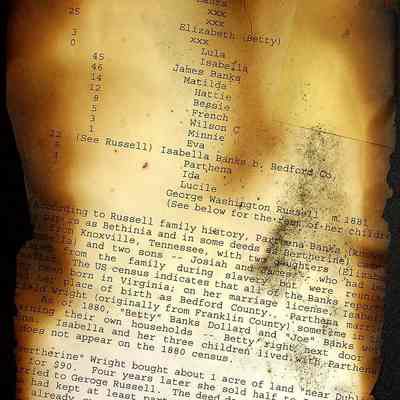 Laura
25 xxx
xxx
3 Elizabeth (Betty)
0 xxx
Lula
45 Isabella
46 James Banks
14 Matilda
12 Hattie
8 Bessie
5 French
3 Wilson C
1 Minnie
Eva
22 (See Russell) Isabella Banks b. Bedford Co.
Parthena
Ida
Lucile
George Washington Russell m. 1881
(See below for the rest of her children
According to Russell family history, Parthena Banks (known
as Bethinia and in some deeds as Bertherine)
from Knoxville, Tennessee, with two daughters (Elizabeth
and two sons -- Josiah and who had been
from the family during slavery but were
The US census indicates that all the Banks
been born in Virginia; on her marriage license, Isabella
place of birth as Bedford County. Parthena married
Wright (originally from Franklin County) sometime in
As of 1880, "Betty" Banks Dollard and "Joe" Banks were
their own households -- Betty right next door
Isabella and her three children lived with Parthena
does not appear on the 1880 census.
"Bertherine" Wright bought about 1 acre of land near Dublin
for $90. Four years later she sold half to
married to Geroge Russell. The deed
had kept at least part
already